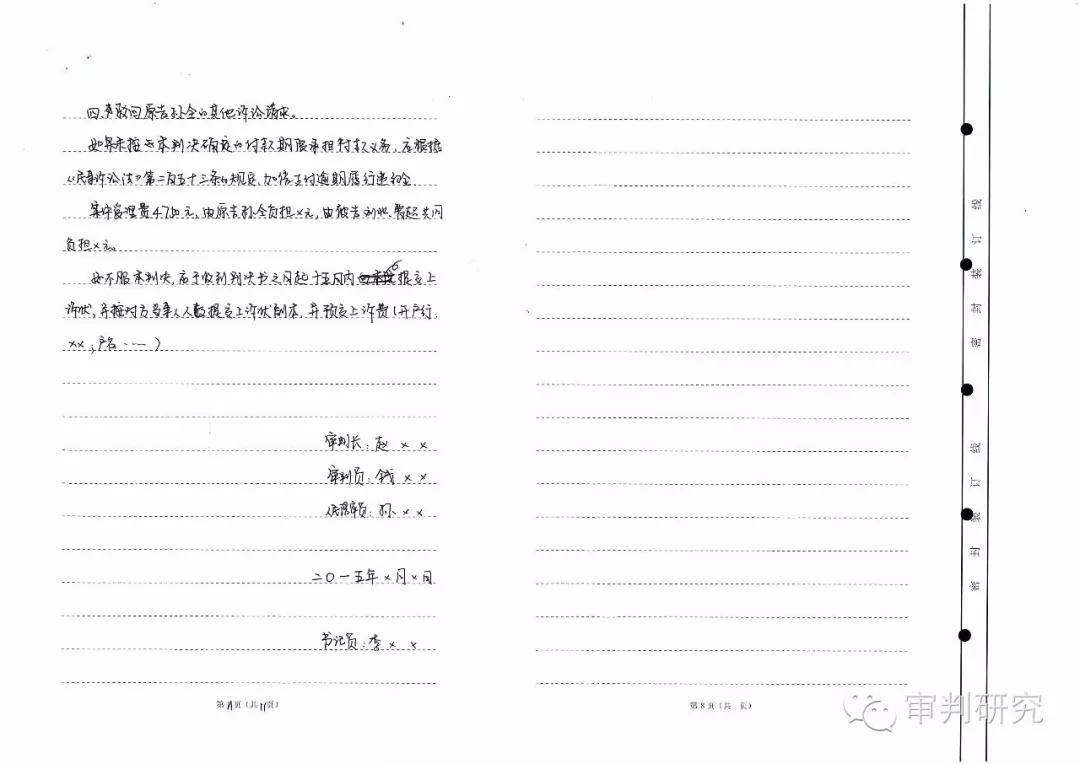 四、驳回原告孙全的其他诉讼请求。
如果未按本判决确定的付款期限承担付款义务,应根据
《民事诉讼法》第二百五十三条的规定,加倍支付逾期履行
案件受理费4750元,由原告孙全负担×元,由被告共同
负担×元。
如不服本判决,应于收到判决书之日起十五日内提交上
诉状,并按对方当事人人数提交上诉状副本,并预交上诉费(开户行:
××;户名……)
审判长:赵××
审判员:钱××
人民陪审员:孙××
二〇一五年×月×日
书记员:李××
第 页(共 页)
第8页(共 页)
密封装订线
密封装订线
审判研究